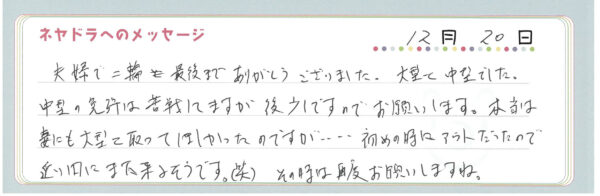 ネヤドラへのメッセージ
12月 20日
夫婦で二輪を最後までありがとうございました。大型と中型でした。
中型の免許は苦戦してますが後少しですのでお願いします。本当は
妻にも大型を取ってほしかったのですが‥‥初めの時はアウトだったので
近い内にまた来るそうです。(笑) その時は再度お願いしますね。